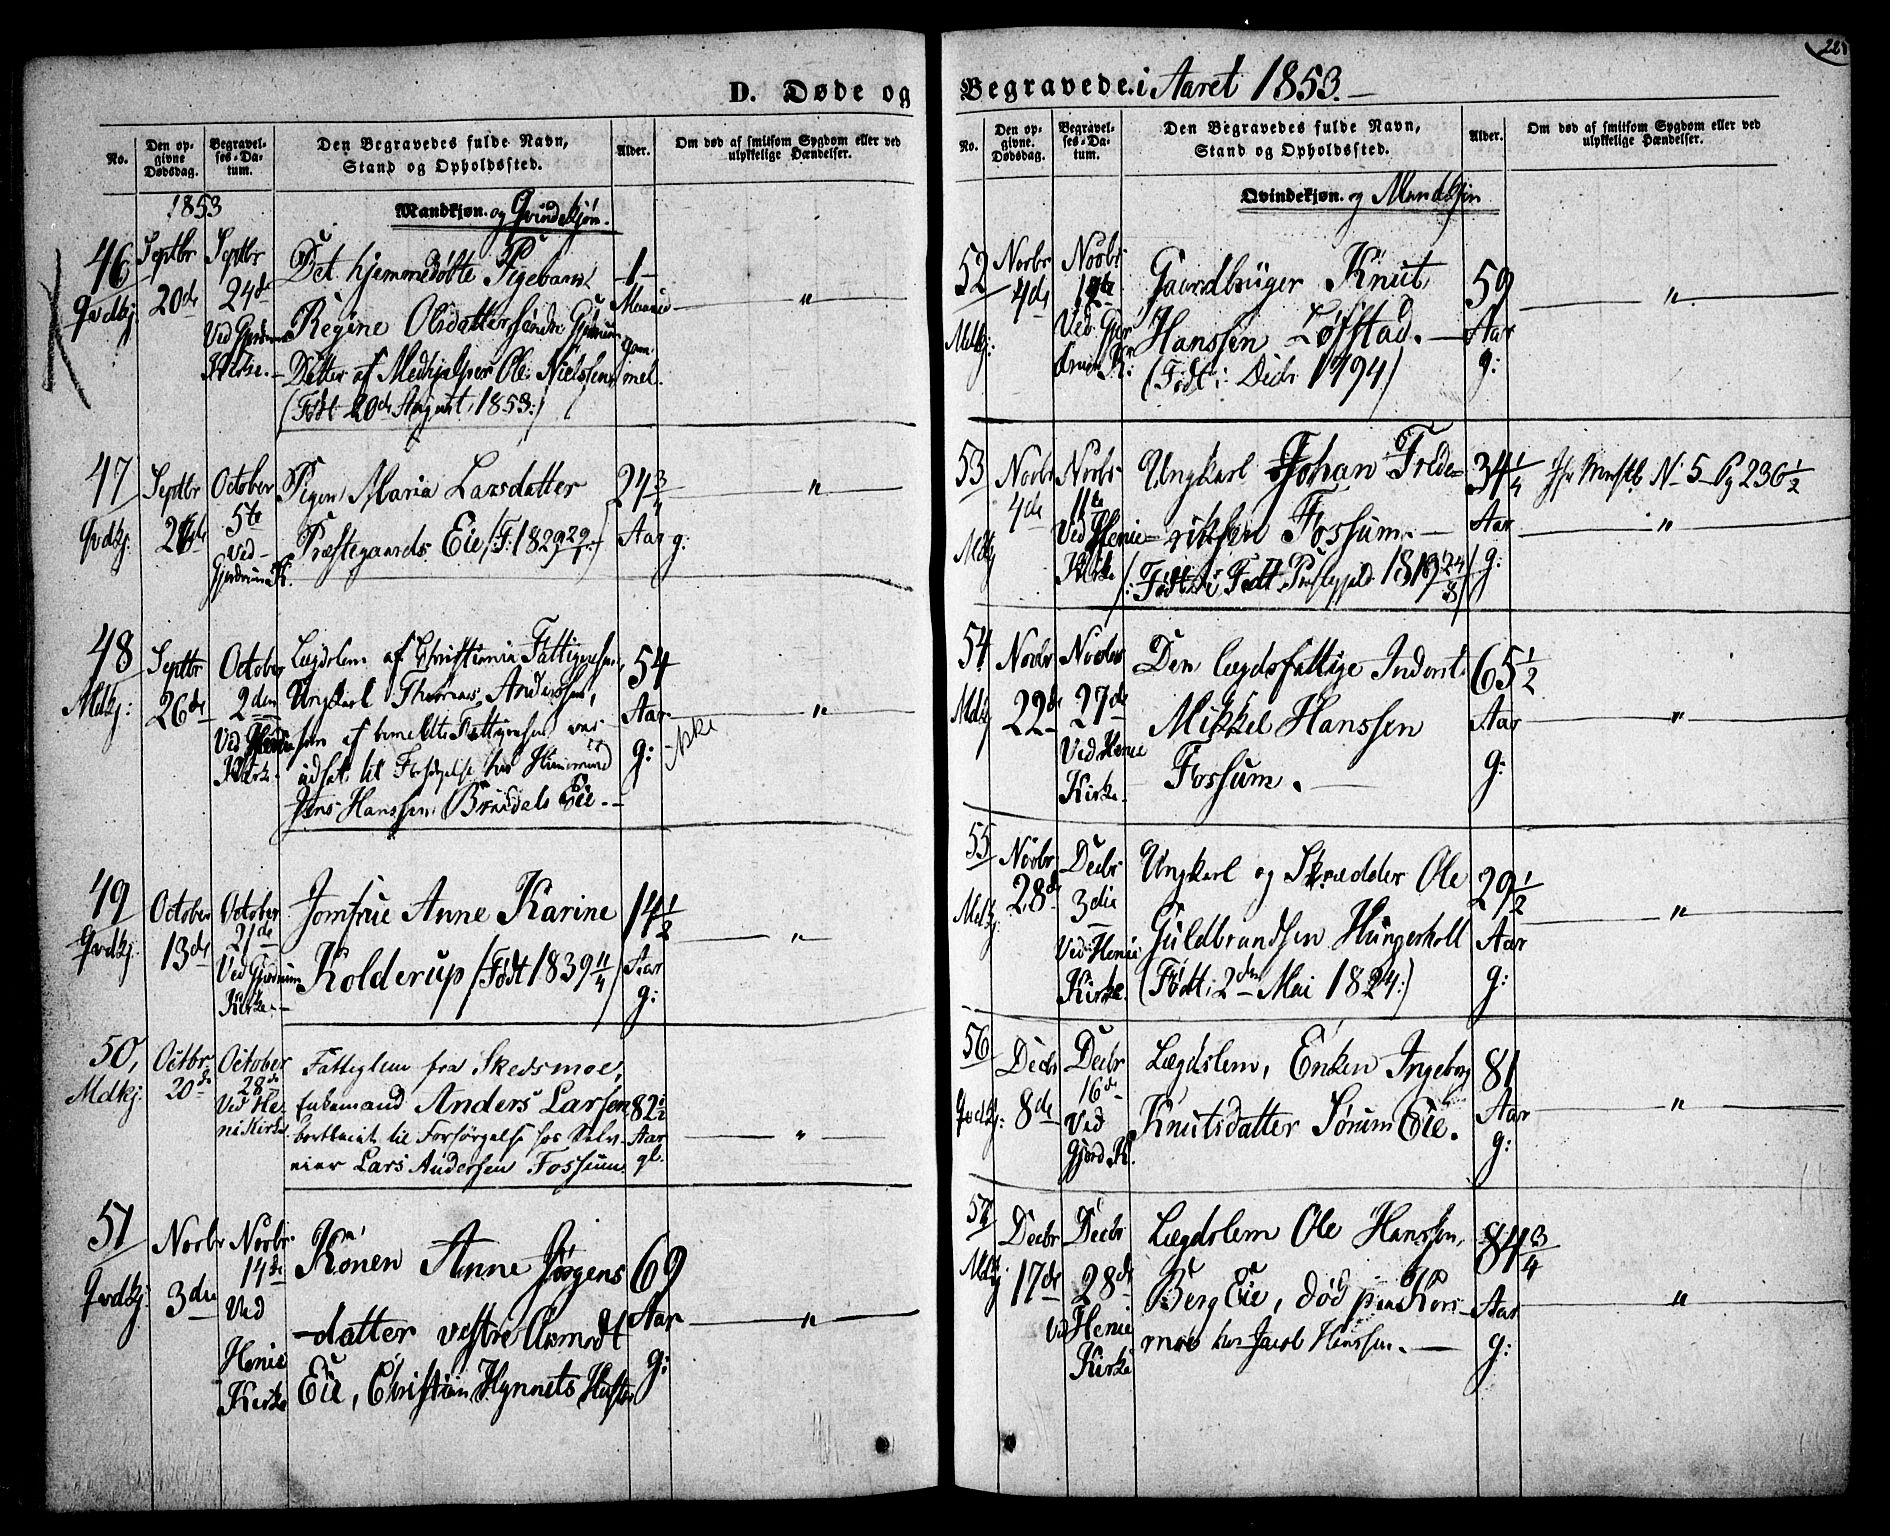 D. Døde og
No.
Den opgivne Dødsdag.
Begravelses-Datum.
Den Begravedes fulde Navn, Stand og Opholdssted.
Alder.
Om død af smitsom Sygdom eller ved ulykkelige Hændelser.
1853
Mandkjøn. og Qvindekjøn.
46 Septbr Septbr Det hjemmedøbte Pigebarn 1
Qvdkj. 20de 24de Regine Olsdatter søndre Gjerdrum Maaned
Ved Gjerdrum Kirke. Datter af Medhjelper Ole Nielsen gammel.
(Født 20de August 1853.)
47 Septbr October Pigen Maria Larsdatter 24 3/4
Qvdkj. 5te Præstegaards Eie, Aar g:
Ved Gjerdrum K.
48 Septbr October Lægdslem af Christiania Fattigvæsen, 54
Mdkj: 26de 2den Ungkarl Thomas Anderssen, Aar
Ved som af bemeldte Fattigvæsen var g: ikke
Kirke. udsat til Forsørgelse hos Huusmand
Jens Hanssen Eie.
49 October October Jomfrue Anne Karine 14 1/2
Qvdkj. 13de 21de Kolderup (Født 1839 11/4) Aar
Ved Gjerdrum Kirke. g:
50, Octbr October Fattiglem fra Skedsmoe,
Mdkj. 20de 28de Enkemand Anders Larsen 82 1/2
Ved Heni Kirke. bortleiet til Forsørgelse hos Selv- Aar
eier Lars Andersen Fossum. gl.
51 Novbr Novbr Konen Anne Jørgens 69
Qvdkj. 3die 14de -datter vestre Asmodt Aar
Ved Henie Kirke Eie, Christian Hynnets Hustru g:
Begravede. i Aaret 1853.
No.
Den opgivne Dødsdag.
Begravelses-Datum.
Den Begravedes fulde Navn, Stand og Opholdssted.
Alder.
Om død af smitsom Sygdom eller ved ulykkelige Hændelser.
Qvindekjøn. og Mandkjøn
52 Novbr Novbr Gaardbruger Knut 59
Mdkj: 4de 12te Hanssen Løfstad. Aar
Ved Gjerdrum K: (Født i Decbr 1794) g:
53 Novbr Novbr Ungkarl Johan Frede= 34 1/4 N 5 Pg 236 1/2
Mdkj 4de 11te =riksen Fossum. Aar
Ved Henie Kirke Præstegjeld g:
54 Novbr Novbr Den lægdsfattige Inderst 65 1/2
Mdkj 22de 27de Mikkel Hanssen Aar
Ved Henie Kirke. Fossum. g:
55 Novbr Decbr Ungkarl og Skrædder Ole 29 1/2
Mdkj. 28de 3die Guldbrandsen Hungerholt Aar
Ved Henie Kirke. (Født 2den Mai 1824.) g:
56 Decbr Decbr Lægdslem, Enken Ingeborg 81
Qvdkj: 8de 16de Knutsdatter Sørum Eie. Aar
Ved Gjerd. K. g:
57 Decbr Decbr Lægdslem Ole Hanssen, 84 3/4
Mdkj 17de 28de Berg Eie, død paa Kors- Aar
Ved Henie Kirke moe hos Jacob Hanssen. g: